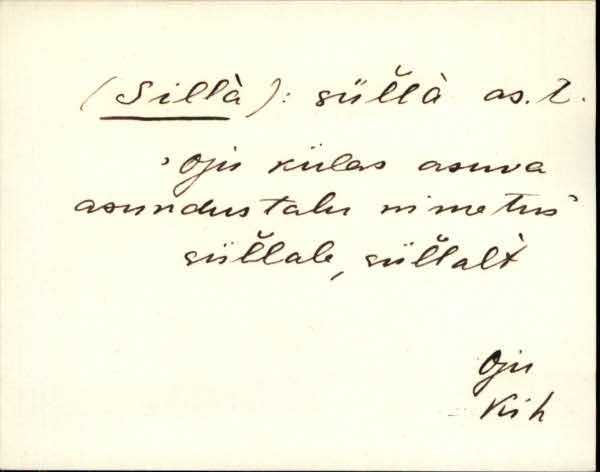 (Sillà): siil̆l̆à as. t.
'Oju külas asuva
asundustalu nimetus'
siil̆l̆ale, siil̆l̆alt̀
Oju
Kih